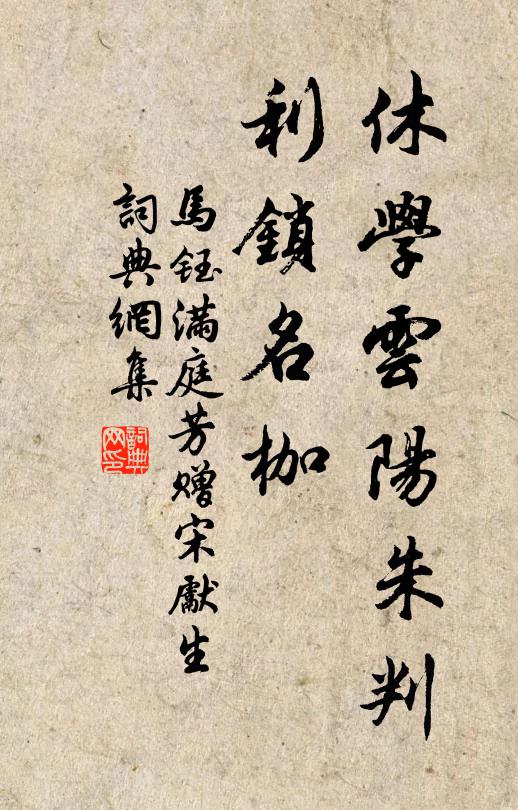 休學雲陽朱判
利鎖名枷
馬鈺滿庭芳赠宋獻生
詞典網集
詞典网印